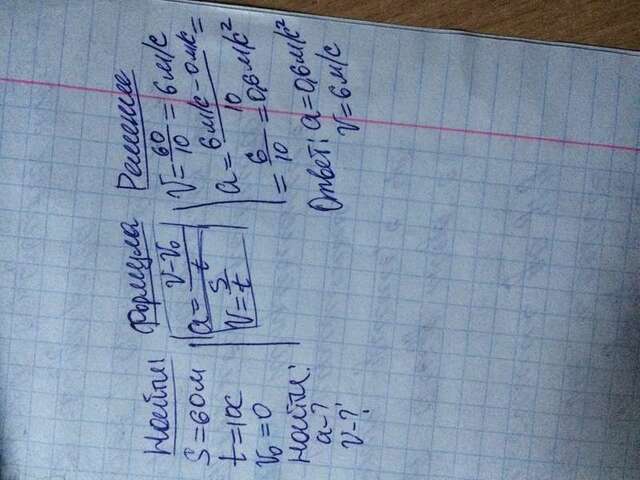 Найти:
S = 60м
t = 10с
V₀ = 0
Найти:
a - ?
V - ?
Формула
a = (V - V₀)/t
V = S/t
Решение
V = 60/10 = 6 м/с
a = (6 м/с - 0 м/с)/10 =
= 6/10 = 0,6 м/с²
Ответ: a = 0,6 м/с²
V = 6 м/с